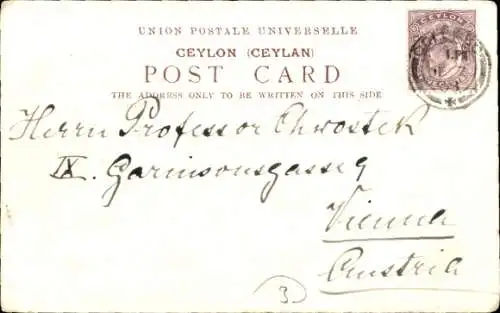 UNION POSTALE UNIVERSELLE
CEYLON (CEYLAN)
POST CARD
THE ADDRESS ONLY TO BE WRITTEN ON THIS SIDE
CEYLON
Herrn Professor Chwostek
IX. Garnisonsgasse 9
Vienna
Austria
3